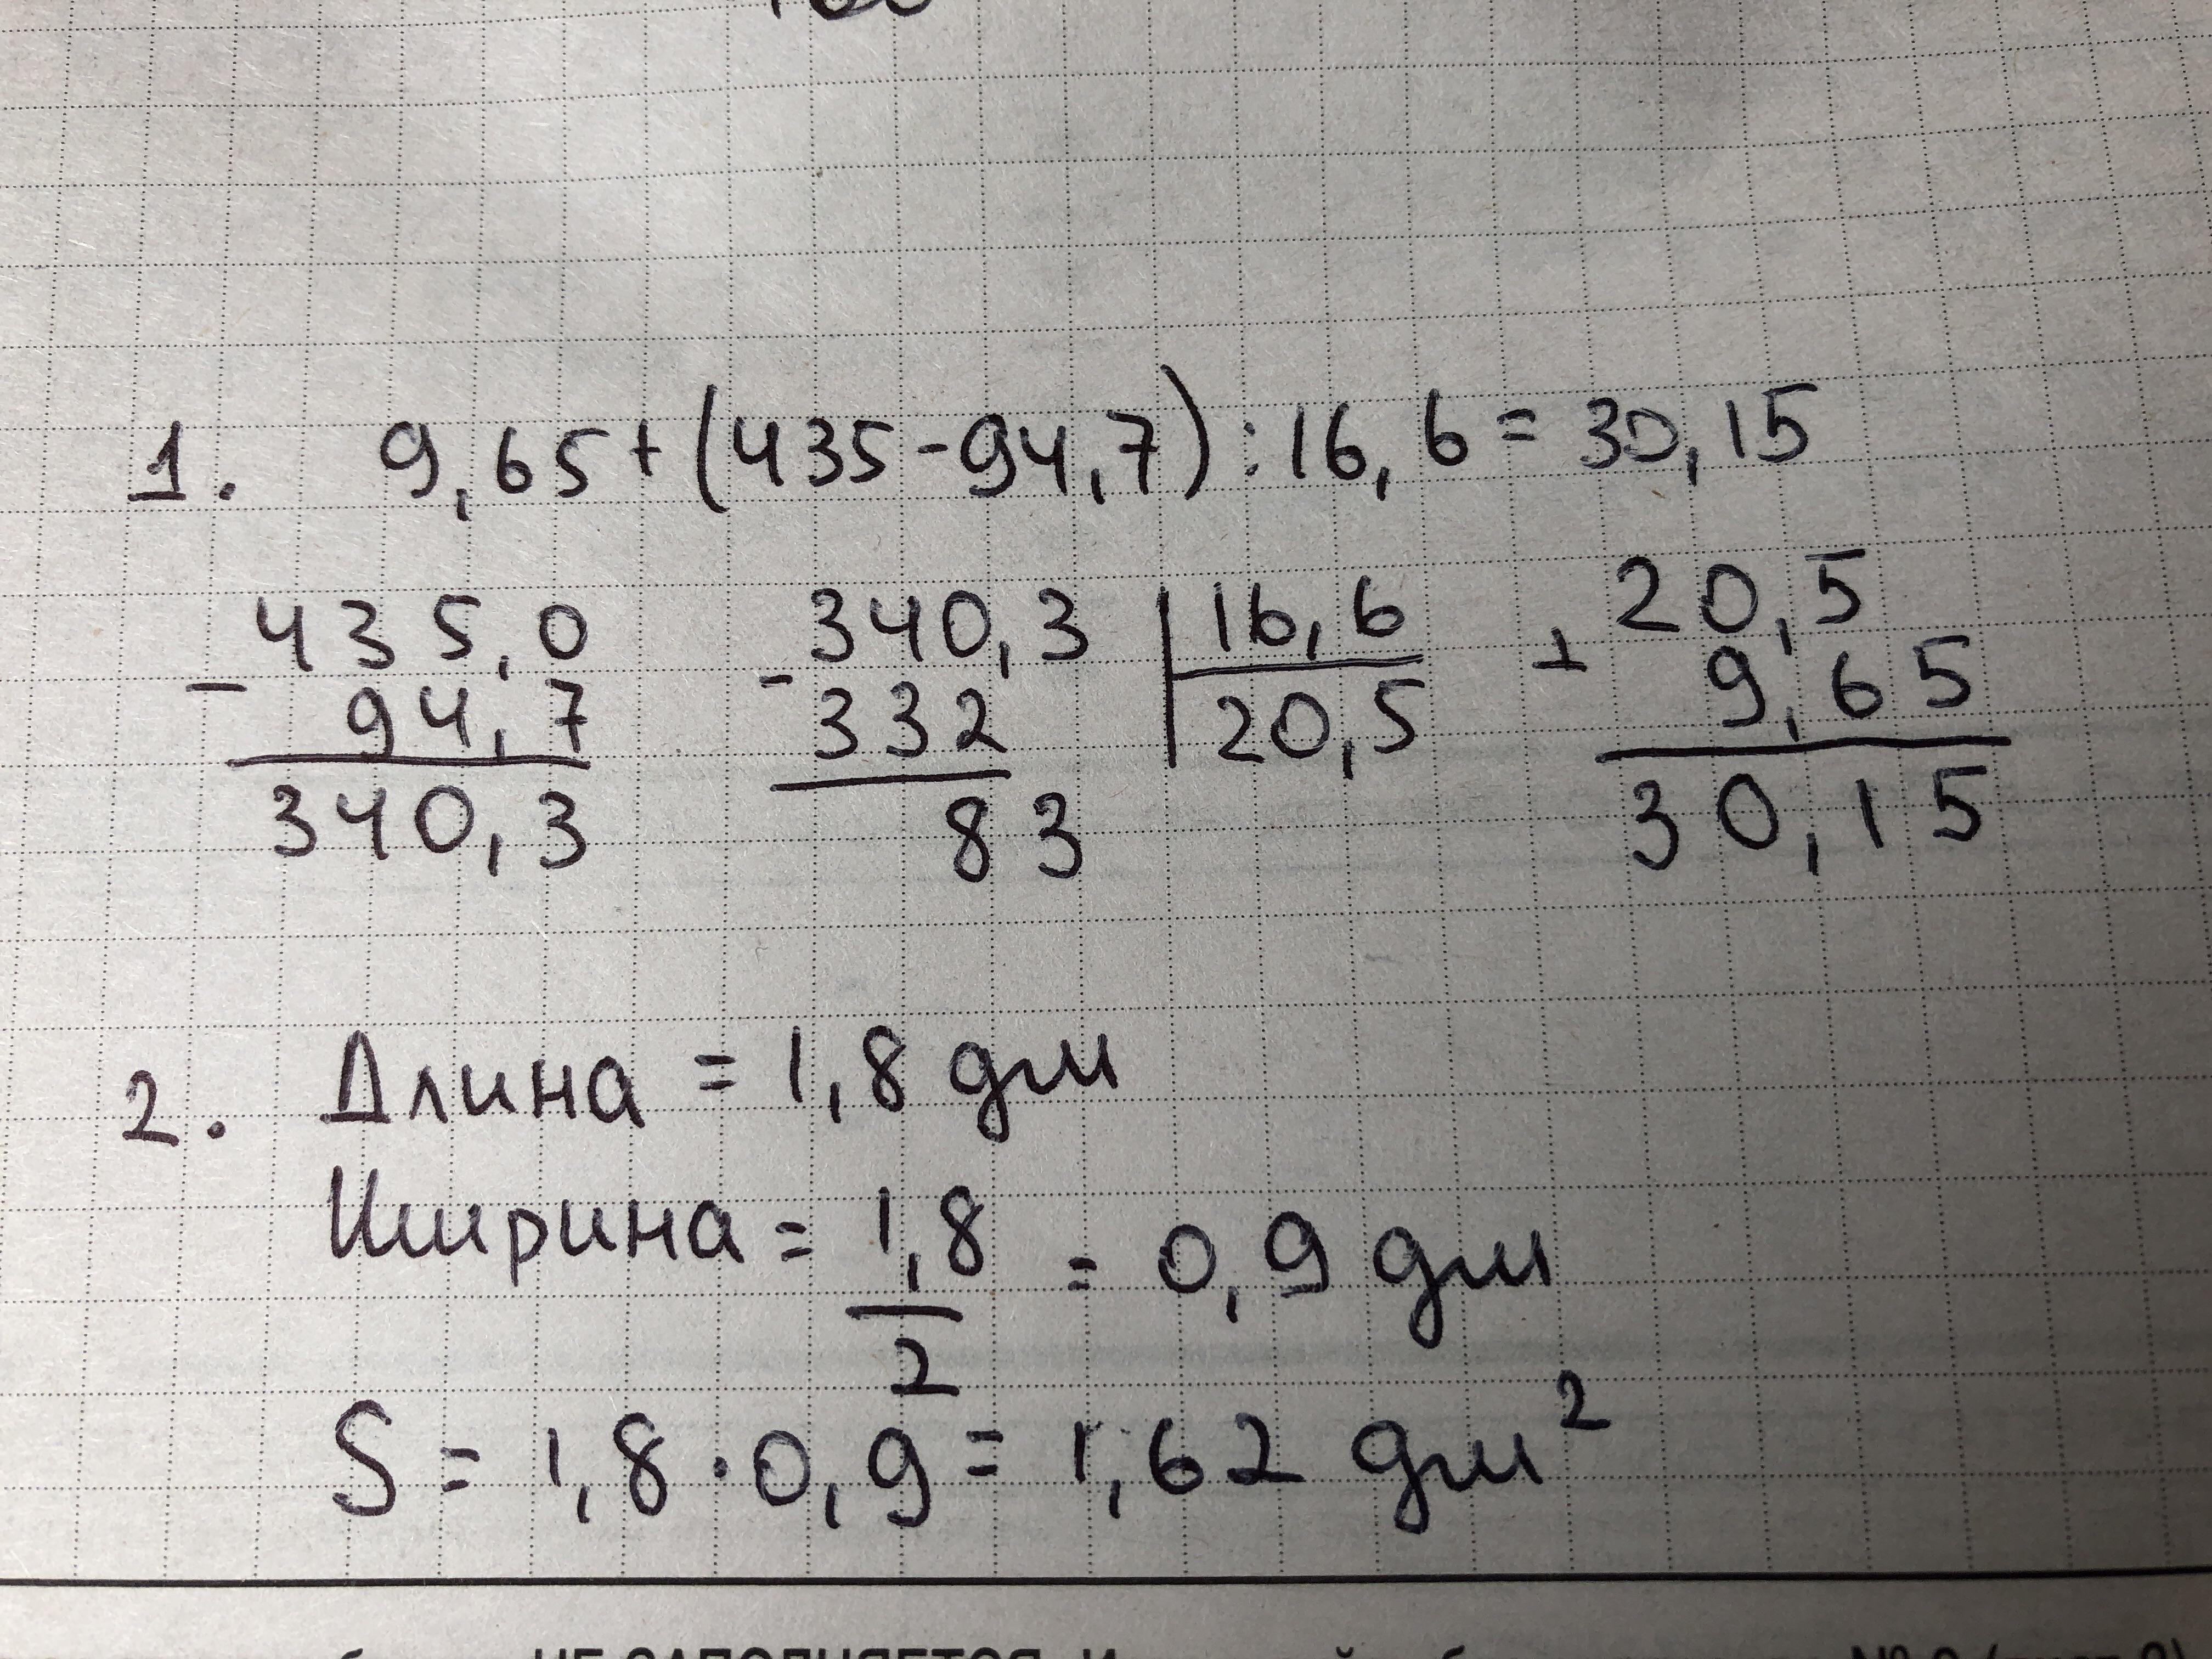 1. 9,65+(435-94,7):16,6=30,15
435,0 340,3 16,6 + 20,5
- 94,7 - 332 20,5 9,65
340,3 83 30,15
2. Длина = 1,8 дм
Ширина = 1,8/2 = 0,9 дм
S = 1,8·0,9 = 1,62 дм²
НЕ ЗАПОЛНЯЕТСЯ.